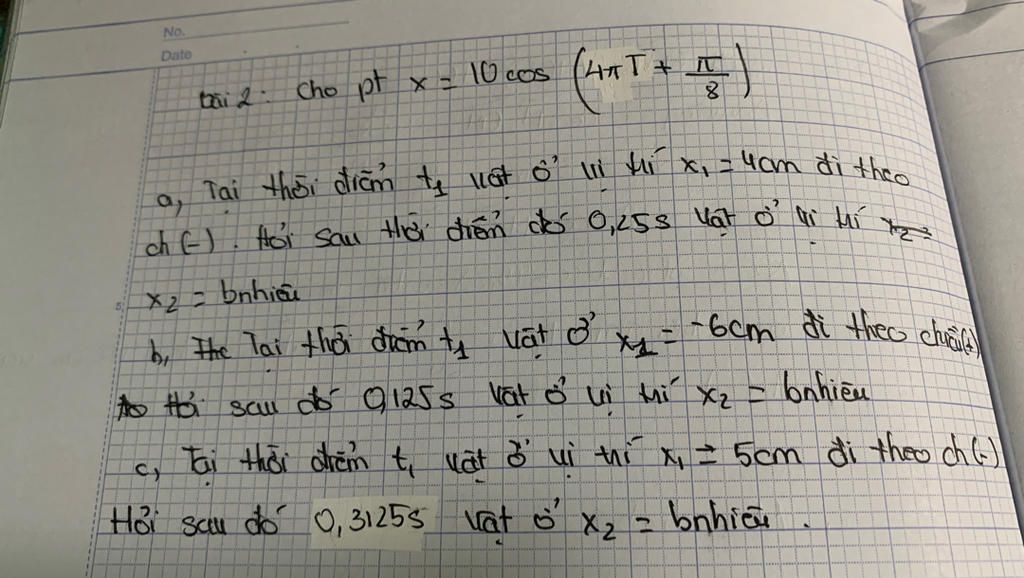 No.
Date
bài 2: Cho pt x = 10 cos (4πT + π/8)
a, Tại thời điểm t₁ vật ở vị trí x₁ = 4cm đi theo
ch (-). Hỏi sau thời điểm đó 0,25s vật ở vị trí x₂ =
x₂ = bnhiêu
b, The Tại thời điểm t₁ vật ở x₁ = -6cm đi theo chiều(+)
Hỏi sau đó 0,125s vật ở vị trí x₂ = bnhiêu
c, Tại thời điểm t₁ vật ở vị trí x₁ = 5cm đi theo ch(-)
Hỏi sau đó 0,3125s vật ở x₂ = bnhiêu.